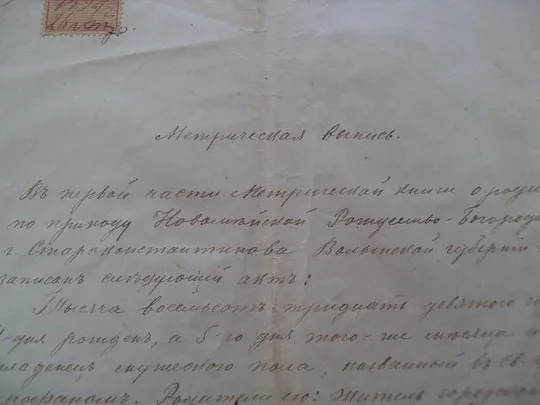 Метрическая выпись.
Въ первой части Метрической книги о роди
по приходу Рождество-Богороди
г. Староконстантинова Волынской губернiи
записан слѣдующiй актъ:
Тысяча восемьсотъ тридцать девятого г
дня рожденъ, а 5-го дня того-же мѣсяца и
младенецъ мужеского пола, названный въ св.
Родители его: житель городской